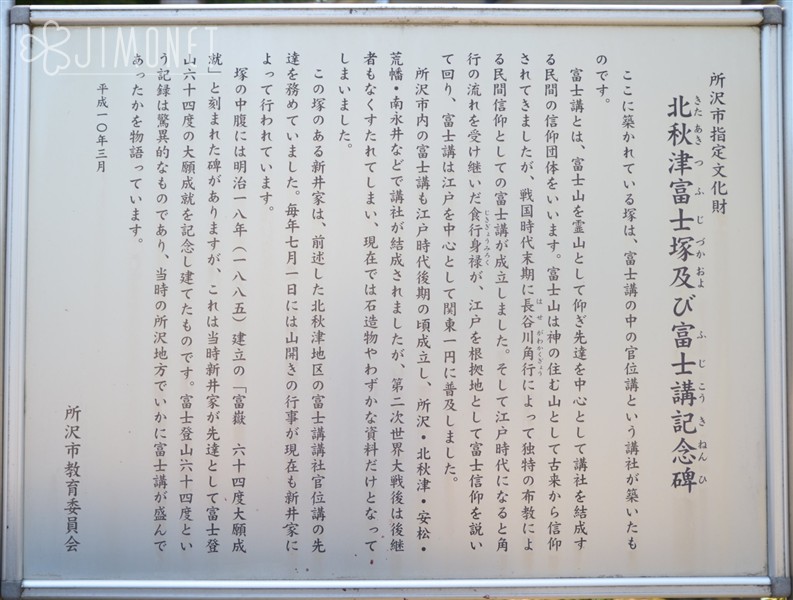 JIMONET
所沢市指定文化財
北秋津富士塚及び富士講記念碑
きたあきつふじづかおよふじこうきねんひ
ここに築かれている塚は、富士講の中の官位講という講社が築いたも
のです。
富士講とは、富士山を霊山として仰ぎ先達を中心として講社を結成す
る民間の信仰団体をいいます。富士山は神の住む山として古来から信仰
されてきましたが、戦国時代末期に長谷川角行によって独特の布教によ
はせがわかくぎょう
る民間信仰としての富士講が成立しました。そして江戸時代になると角
行の流れを受け継いだ食行身禄が、江戸を根拠地として富士信仰を説い
じきぎょうみろく
て回り、富士講は江戸を中心として関東一円に普及しました。
所沢市内の富士講も江戸時代後期の頃成立し、所沢・北秋津・安松・
荒幡・南永井などで講社が結成されましたが、第二次世界大戦後は後継
者もなくすたれてしまい、現在では石造物やわずかな資料だけとなって
しまいました。
この塚のある新井家は、前述した北秋津地区の富士講講社官位講の先
達を務めていました。毎年七月一日には山開きの行事が現在も新井家に
よって行われています。
塚の中腹には明治一八年（一八八五）建立の「富嶽　六十四度大願成
就」と刻まれた碑がありますが、これは当時新井家が先達として富士登
山六十四度の大願成就を記念し建てたものです。富士登山六十四度とい
う記録は驚異的なものであり、当時の所沢地方でいかに富士講が盛んで
あったかを物語っています。
平成一〇年三月
所沢市教育委員会